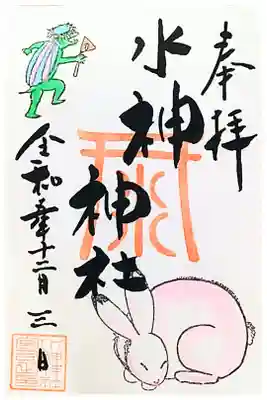 奉拝
水神神社
令和年十二月三日